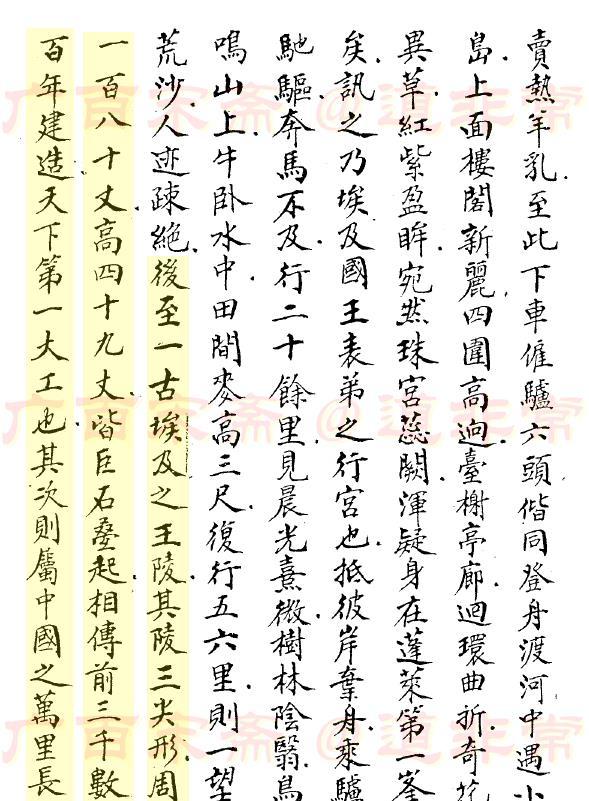 賣熱羊乳.至此下車僱驢六頭偕同登舟渡河中遇小
島.上面樓閣新麗,四圍高迥.臺榭亭廊.迴環曲折.奇花
異草.紅紫盈眸.宛然珠宮蕊闕.渾疑身在蓬萊第一峯
矣.訊之乃埃及國王表弟之行宮也.抵彼岸棄舟乘驢
馳驅.奔馬不及.行二十餘里.見晨光熹微.樹林陰翳.鳥
鳴山上.牛臥水中.田間麥高三尺.復行五六里.則一望
荒沙.人迹疎絕.後至一古埃及之王陵.其陵三尖形.周
一百八十丈.高四十九丈.皆巨石壘起.相傳前三千數
百年建造.天下第一大工也.其次則屬中國之萬里長
广百宋斋@道非常
广百宋斋@道非常
广百宋斋@道非常